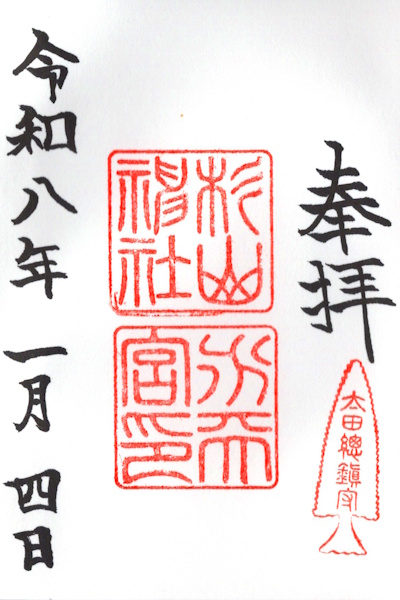 奉拝
太田總鎮守
杉山
神社
水天
宮印
令和八年 一月 四日